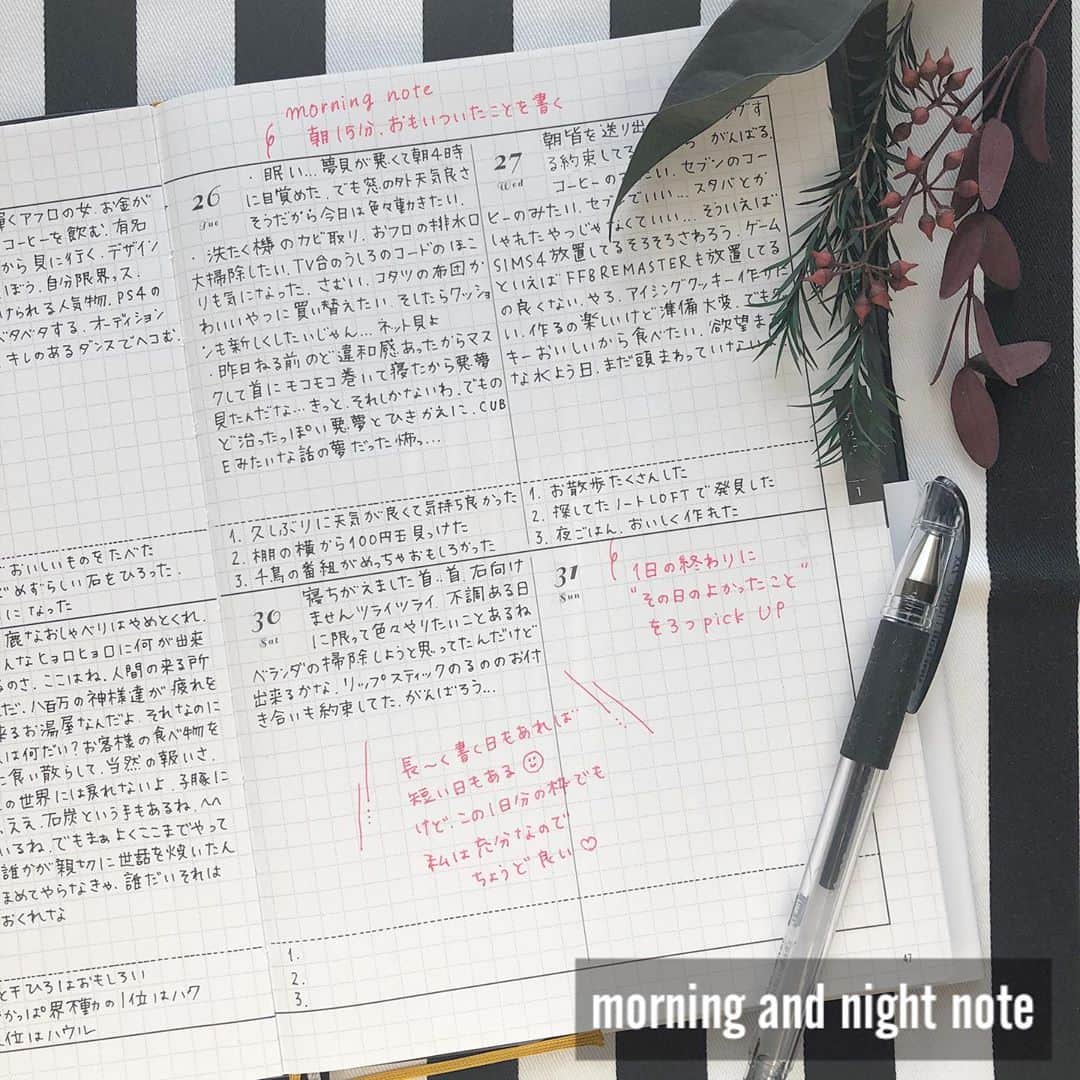 morning note
朝15分、おもいついたことを書く
輝くアフロの女、お金が
コーヒーを飲む、有名
から貝に行く、デザイン
ぼう、自分限界ッス、
けられる人気物、PS4の
ベタベタする、オーディション
キレのあるダンスでヘコむ、
おいしいものをたべた
めずらしい石をひろった、
になった
26
Tue
・眠い…夢見が悪くて朝4時
に目覚めた、でも窓の外天気良さ
そうだから今日は色々動きたい、
・洗たく機のカビ取り、おフロの排水口
大掃除したい、TV台のうしろのコードのほこ
りも気になった、さむい、コタツの布団か
わいいやつに買い替えたい、そしたらクッショ
ンも新しくしたいじゃん…ネット見よ
・昨日ねる前のど違和感あったからマス
クして首にモコモコ巻いて寝たから悪夢
見たんだな…きっと、それしかないわ、でもの
ど治ったっぽい悪夢とひきかえに、CUB
Eみたいな話の夢だった怖っ…
1. 久しぶりに天気が良くて気持ち良かった
2. 棚の横から100円玉見っけた
3. 千鳥の番組がめっちゃおもしろかった
27
Wed
朝皆を送り出
る約束してる がんばる、
コーヒーの たい、セブンのコー
ヒーのみたい、セブンでいい…スタバとか
しゃれたやつじゃなくていい…そういえば
SIMS4放置してるそろそろさわろう、ゲーム
といえばFF8REMASTERも放置してる
の良くない、やろ、アイシングクッキー作りた
い、作るの楽しいけど準備大変、でもク
キーおいしいから食べたい、欲望ま
な水よう日、まだ頭まわっていない
1. お散歩たくさんした
2. 探してたノートLOFTで発見した
3. 夜ごはん、おいしく作れた
鹿なおしゃべりはやめとくれ、
んなヒョロヒョロに何が出来
るのさ、ここはね、人間の来る所
だ、八百万の神様達が疲れを
来るお湯屋なんだよ、それなのに
は何だい?お客様の食べ物を
食い散らして、当然の報いさ、
の世界には戻れないよ、子豚に
、ええ、石炭という手もあるね、へへ
いるね、でもまぁよくここまでやって
誰かが親切に世話を焼いたん
まめてやらなきゃ、誰だいそれは
おくれな
と千ひろはおもしろい
かっぱ界不動の1位はハク
位はハウル
30
Sat
寝ちがえました首‥首、右向け
ませんツライツライ、不調ある日
に限って色々やりたいことあるね
ベランダの掃除しようと思ってたんだけど
出来るかな、リップスティックのるののお付
き合いも約束してた、がんばろう…
1.
2.
3.
31
Sun
1日の終わりに
"その日のよかったこと"
を3つpick UP
長〜く書く日もあれば
短い日もある
けど、この1日分の枠でも
私は充分なので
ちょうど良い♡
1
47
morning and night note